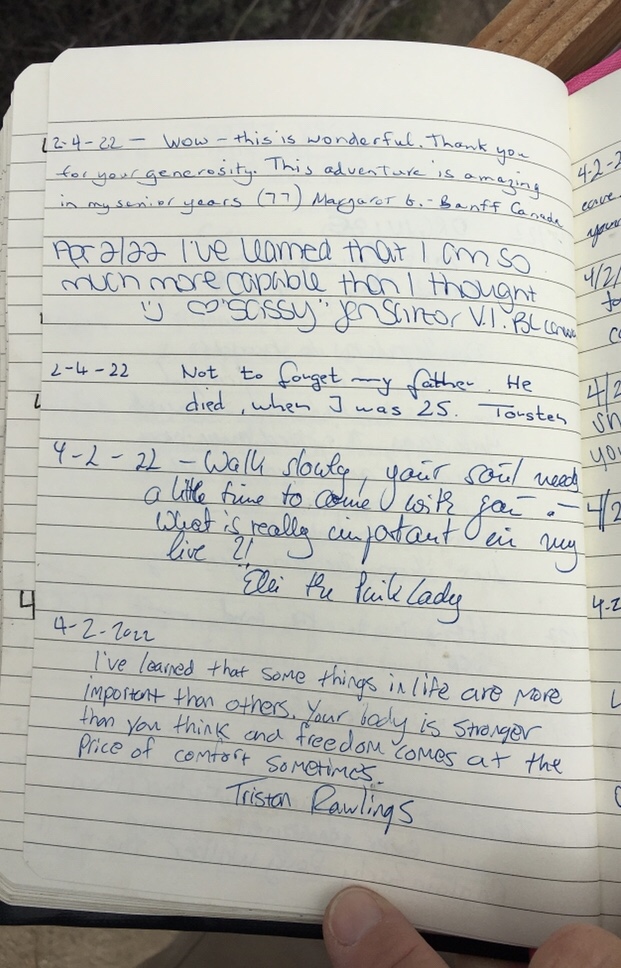 2-4-22 - Wow - this is wonderful. Thank you
for your generosity. This adventure is amazing
in my senior years (77) Margaret G. - Banff Canada
Apr 2/22 I've learned that I am so
much more capable than I thought
"Sassy" Jen V.I. BC
2-4-22 Not to forget my father. He
died, when I was 25. Torsten
4-2-22 - Walk slowly, your soul needs
a little time to come with you -
What is really important in my
live ?!
Elli the Pink Lady
4
4-2-2022
I've learned that some things in life are more
important than others. Your body is stronger
than you think and freedom comes at the
price of comfort sometimes.
Tristan Rawlings
4-2-2
4/2/
4/2
sh
you
4/2
4-2